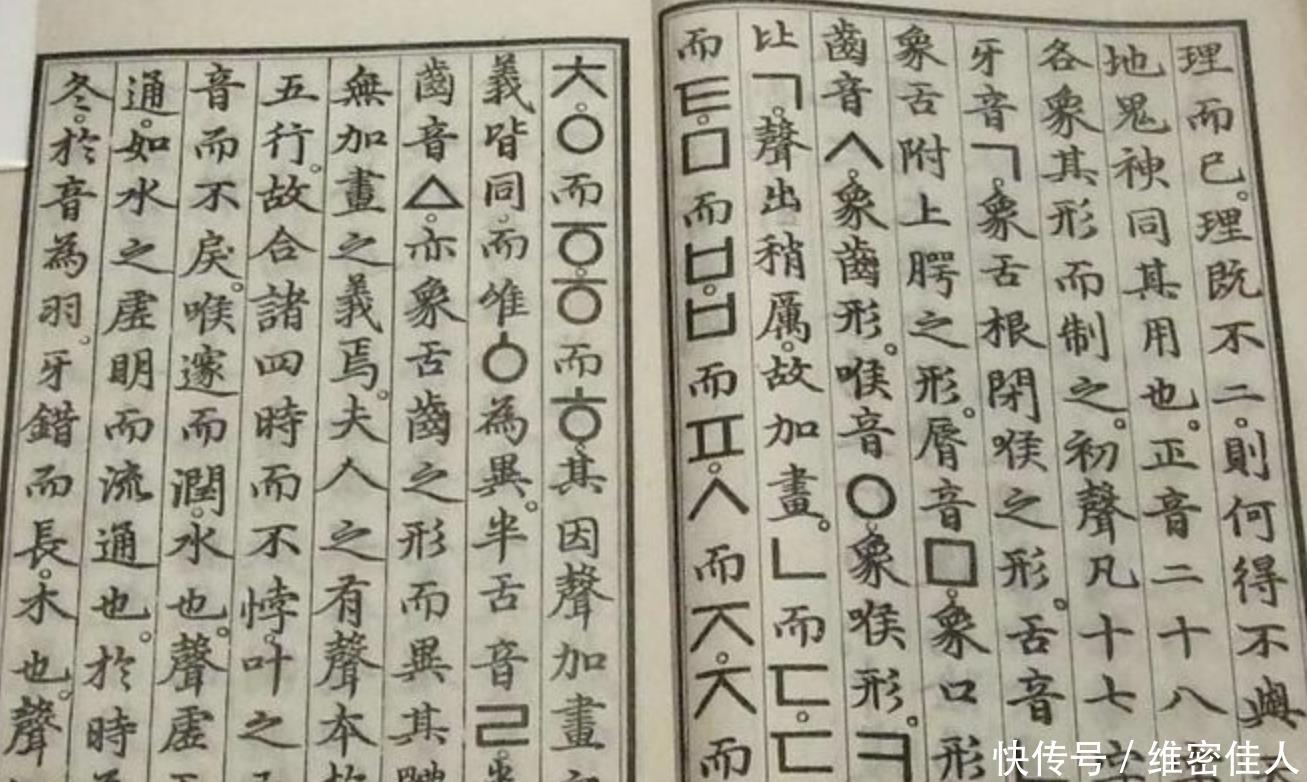 理而已。理既不二。則何得不與
地鬼神同其用也。正音二十八
各象其形而制之。初聲凡十七
牙音ㄱ。象舌根閉喉之形。舌音
象舌附上腭之形。脣音ㅁ。象口形
齒音ㅅ。象齒形。喉音ㅇ。象喉形。ㅋ
比ㄱ。聲出稍厲。故加畫。ㄴ而ㄷ。ㄷ
而ㅌ。ㅁ而ㅂ。ㅂ而ㅍ。ㅅ而ㅈ。ㅈ而
ㅊ。ㅇ而ㆆ。ㆆ而ㅎ。其因聲加畫
義皆同。而唯ㆁ為異。半舌音ㄹ。
齒音ㅿ。亦象舌齒之形而異其
無加畫之義焉。夫人之有聲本
五行。故合諸四時而不悖。叶之
音而不戾。喉邃而潤。水也。聲虛
通。如水之虛明而流通也。於時
冬。於音為羽。牙錯而長。木也。聲
快传号 / 维密佳人